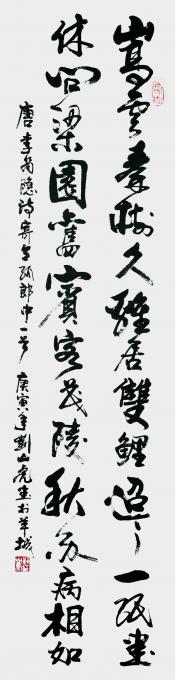 嵩雲秦樹久離居雙鯉迢〻一紙書
休問梁園舊賓客茂陵秋雨病相如
唐李商隱詩寄令狐郎中一首 庚寅年劉山虎書於羊城